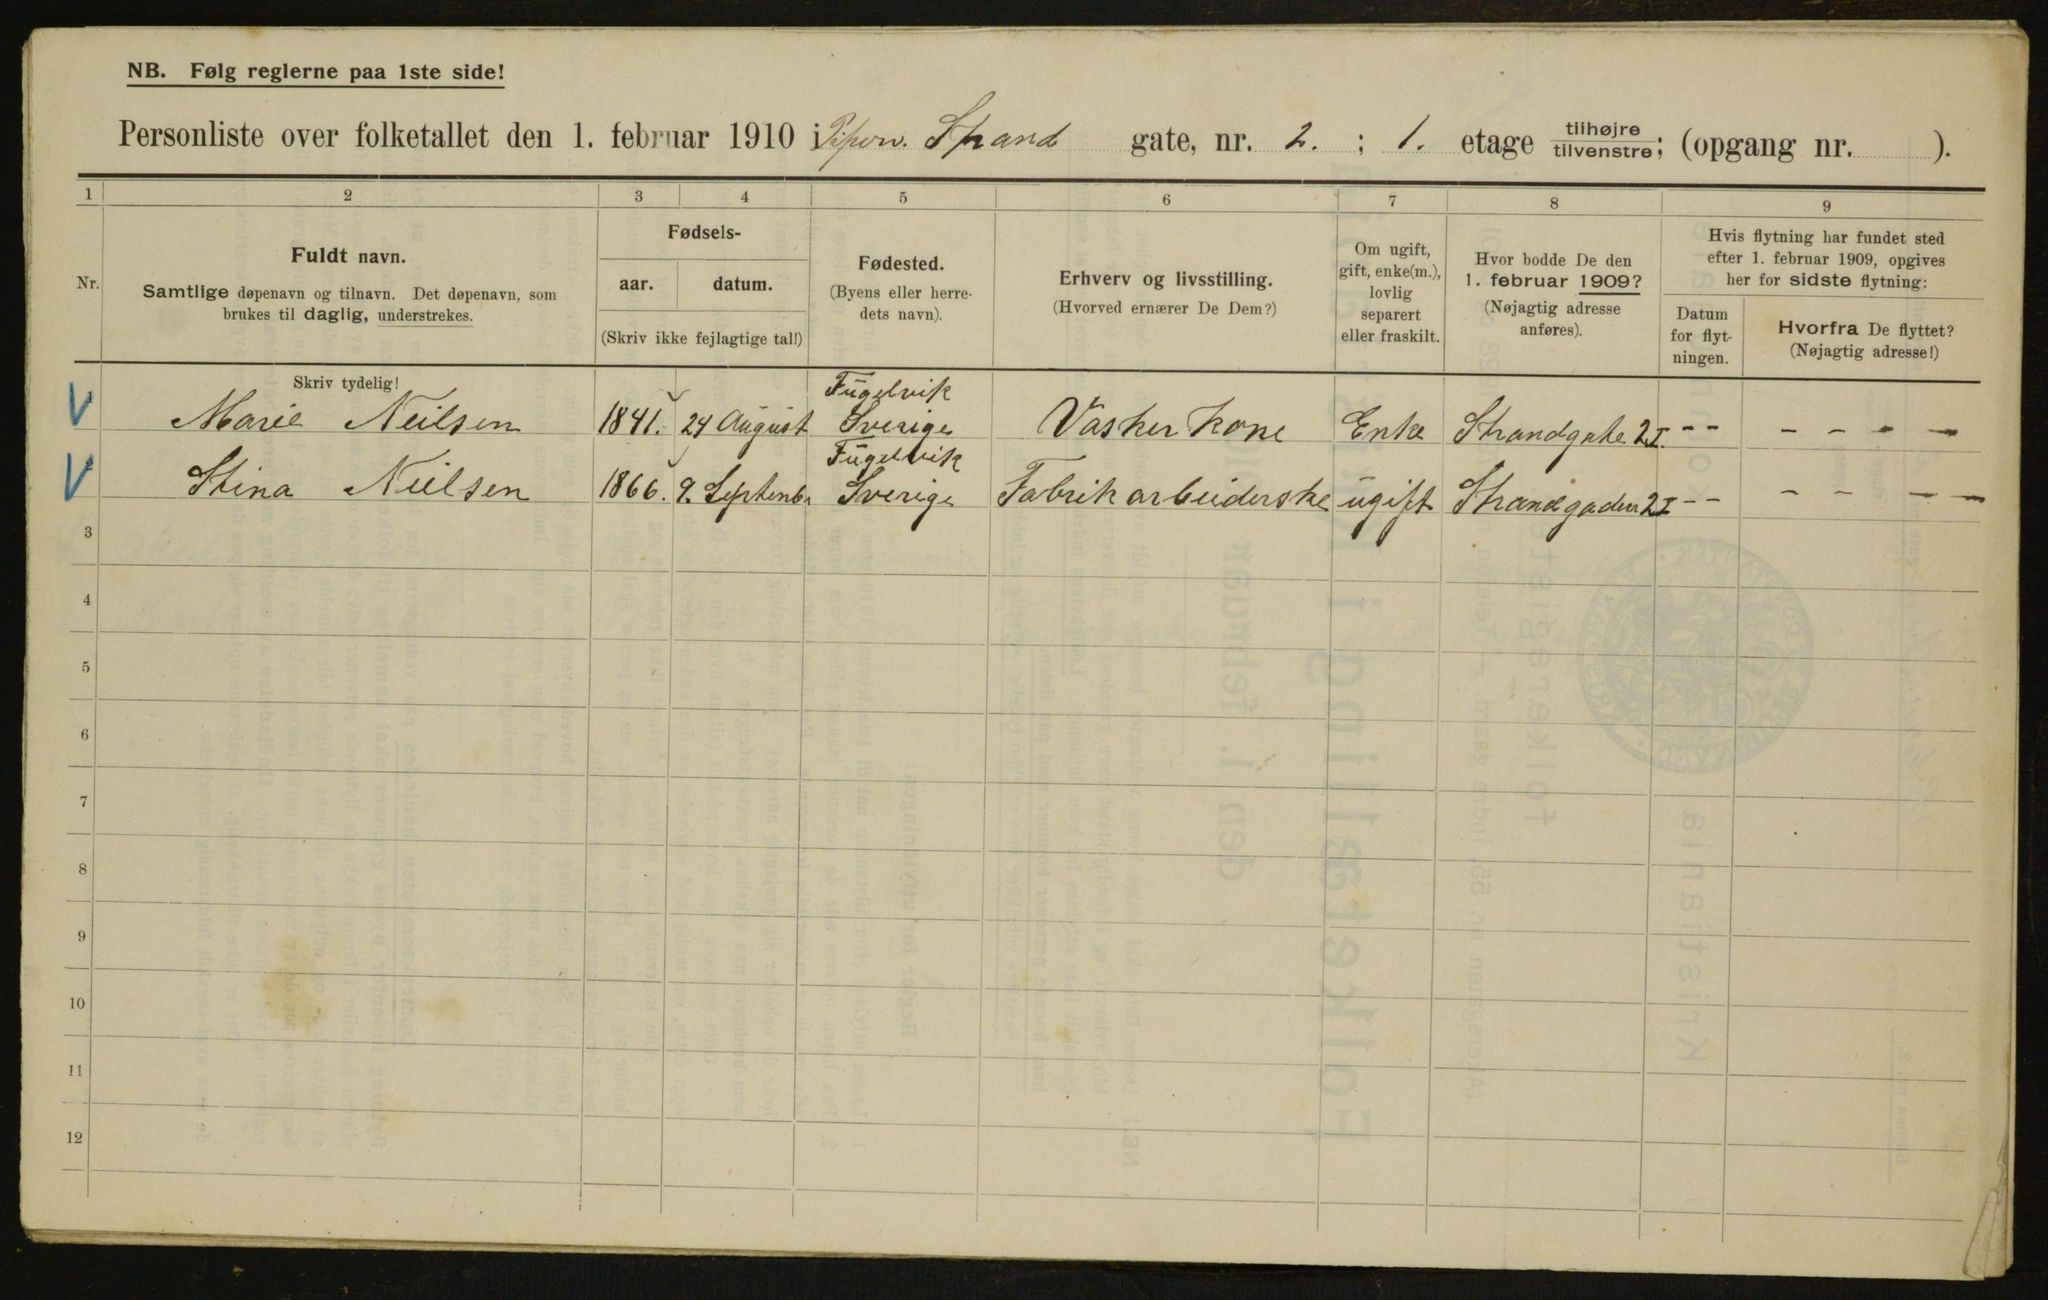 NB. Følg reglerne paa 1ste side!
Personliste over folketallet den 1. februar 1910 i Piperv. Strand gate, nr. 2. ; 1. etage tilhøjre/tilvenstre; (opgang nr. ).
1 2 3 4 5 6 7 8 9
Nr.
Fuldt navn.
Samtlige døpenavn og tilnavn. Det døpenavn, som
brukes til daglig, understrekes.
Fødsels-
aar. datum.
(Skriv ikke fejlagtige tal!)
Fødested.
(Byens eller herre-
dets navn).
Erhverv og livsstilling.
(Hvorved ernærer De Dem?)
Om ugift,
gift, enke(m.),
lovlig
separert
eller fraskilt.
Hvor bodde De den
1. februar 1909?
(Nøjagtig adresse
anføres).
Hvis flytning har fundet sted
efter 1. februar 1909, opgives
her for sidste flytning:
Datum
for flyt-
ningen.
Hvorfra De flyttet?
(Nøjagtig adresse!)
Skriv tydelig!
Fugelvik
V Marie Neilsen 1841. 24 August Sverige Vasker kone Enke Strandgate 2 I. - - - - - -
Fugelvik
V Stina Nielsen 1866. 9. Septembr Sverige Fabrik arbeiderske ugift Strandgaden 2 I - - - - - -
3
4
5
6
7
8
9
10
11
12